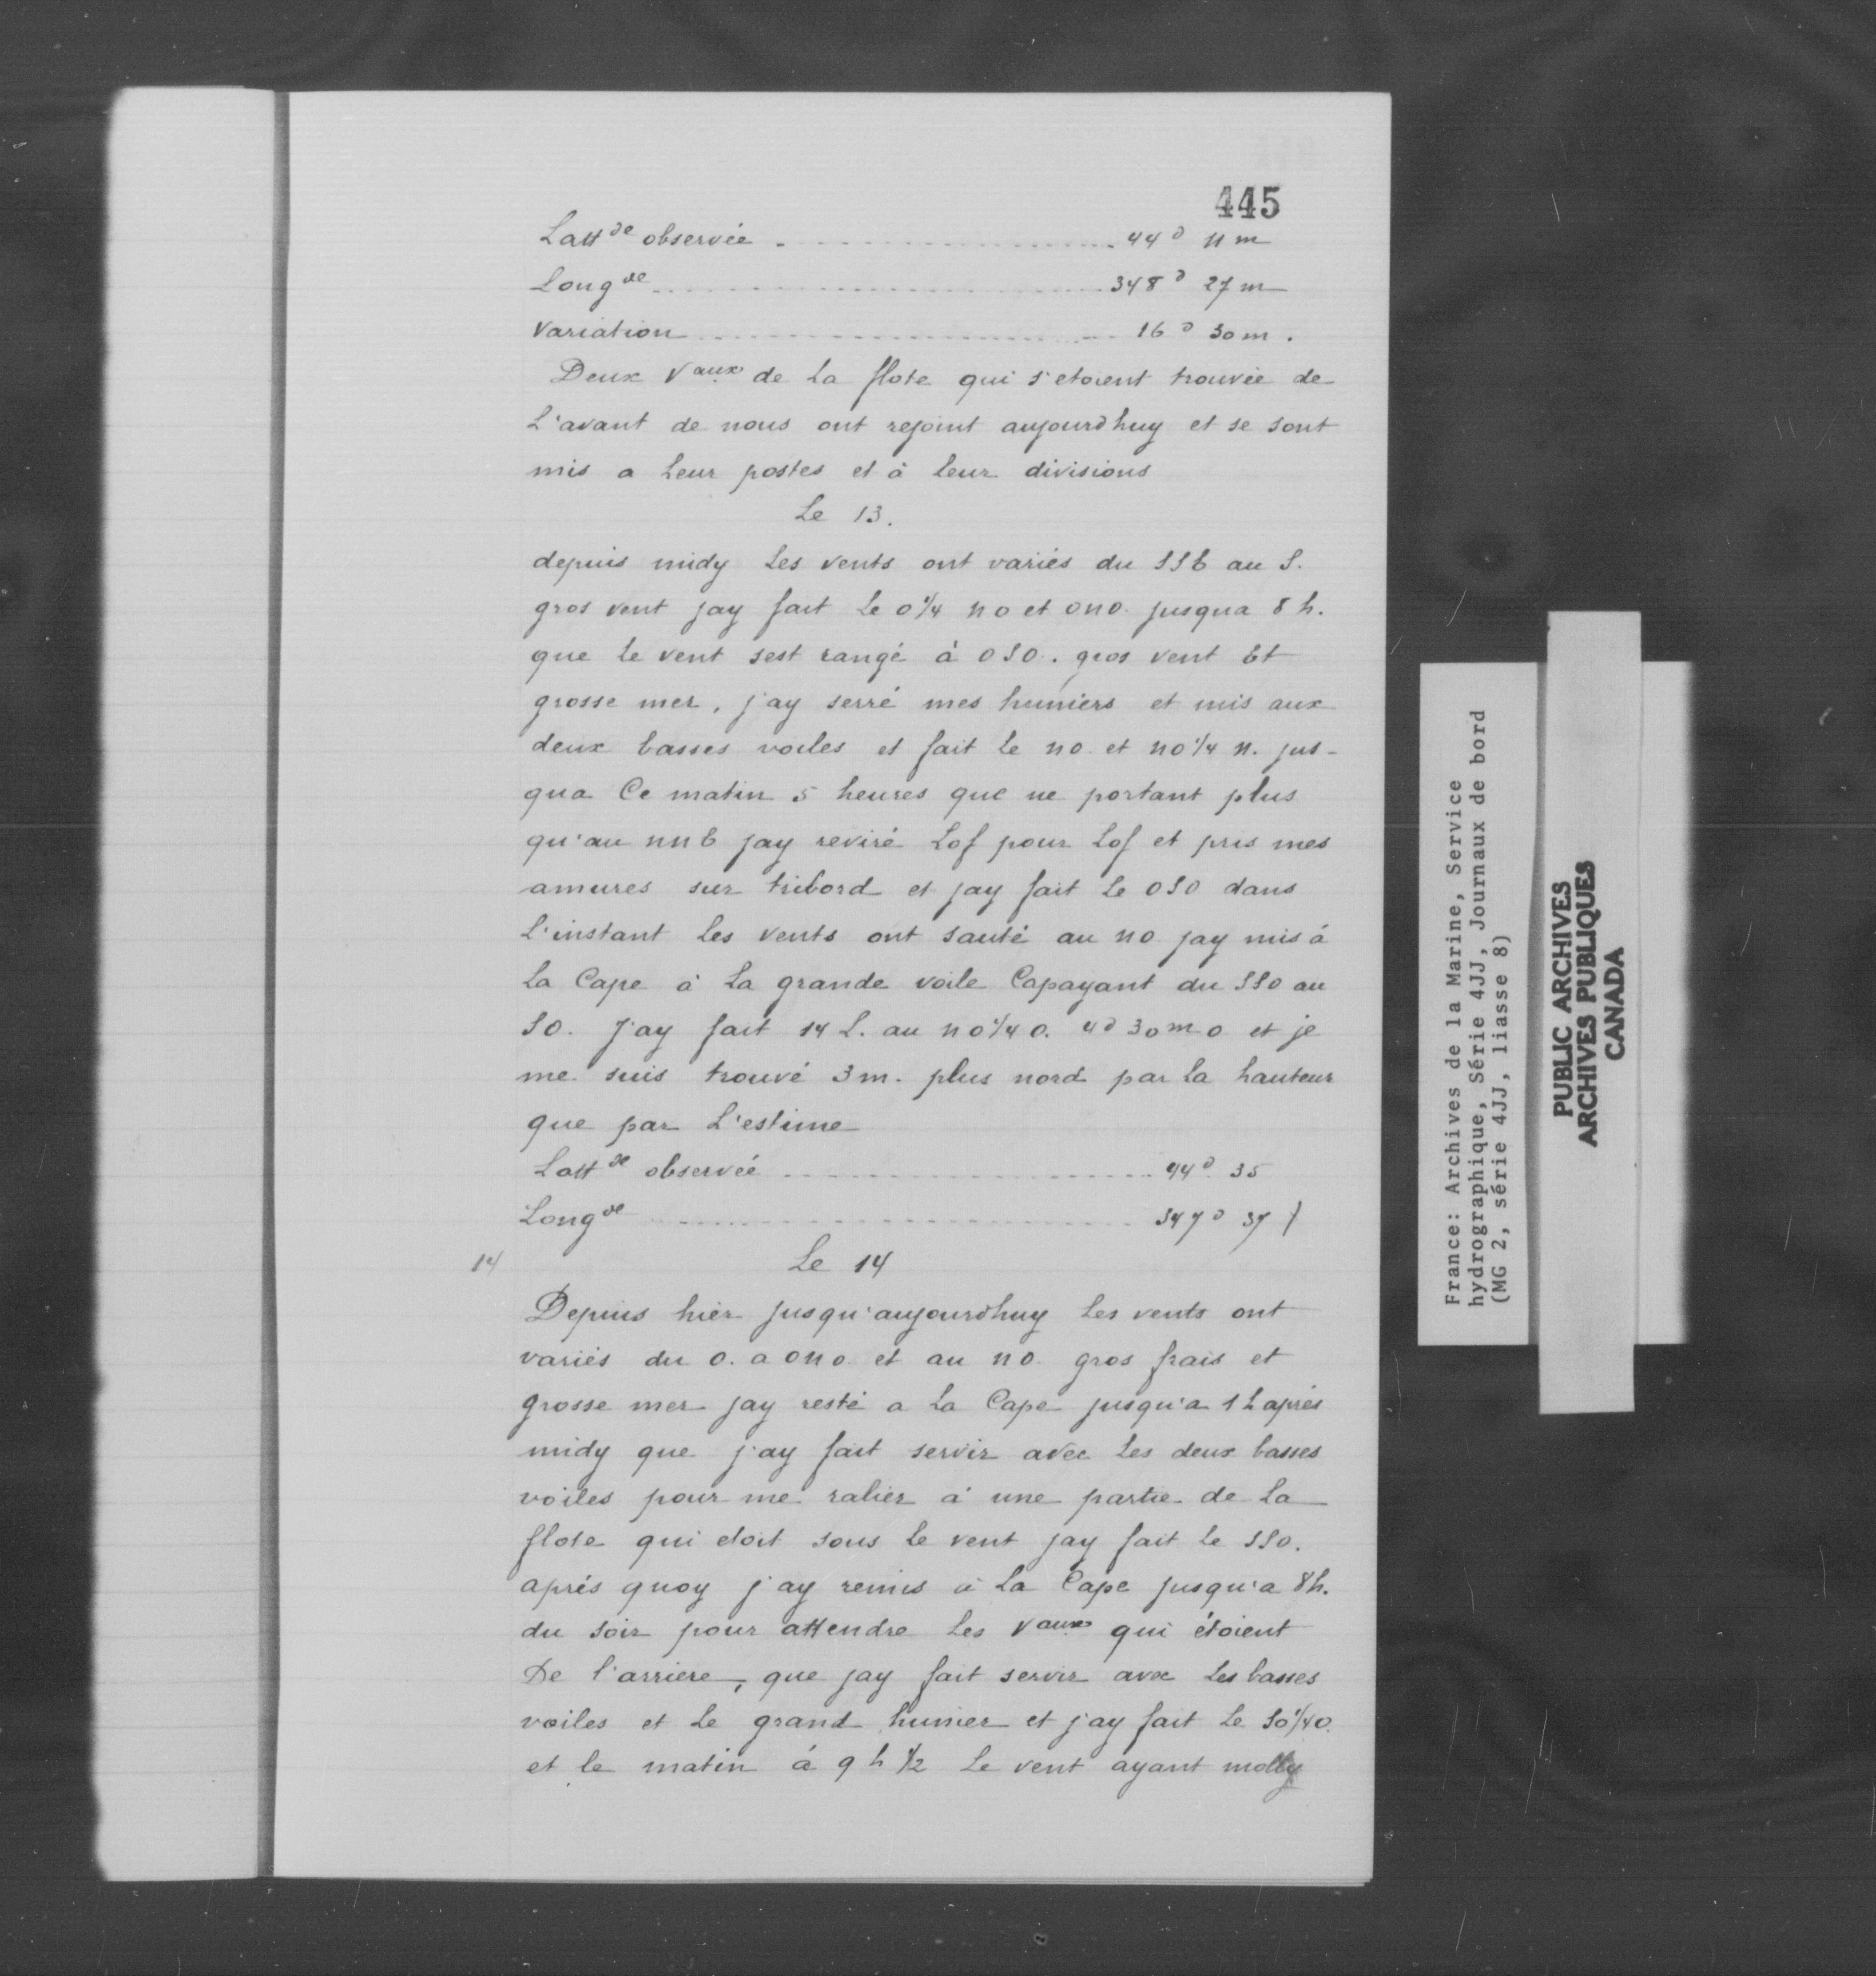 445
Latt de observée - - - - - - - - - - - 44 d 11 m
Long de - - - - - - - - - - - 348 d 27 m
Variation - - - - - - - - - - - 16 d 30 m.
Deux Vaux de La flote qui s'etoient trouvée de
L'avant de nous ont rejoint aujourdhuy et se sont
mis a Leur postes et à leur divisions
Le 13.
depuis midy Les vents ont variés du SSE au S.
gros vent jay fait Le O 1/4 no et ono jusqua 8 h.
que Le vent sest rangé à OSO. gros vent Et
grosse mer, j'ay serré mes huniers et mis aux
deux basses voiles et fait Le no et no 1/4 n. jus-
qua Ce matin 5 heures que ne portant plus
qu'au nnE jay reviré Lof pour Lof et pris mes
amures sur tribord et jay fait Le OSO dans
L'instant Les vents ont sauté au no jay mis à
La Cape à La grande voile Capayant du SSO au
SO. J'ay fait 14 L. au no 1/4 o. 4 d 30 m o et je
me suis trouvé 3 m. plus nord par La hauteur
que par L'estime
Latt de observée - - - - - - - - - - - 44 d 35
Long de - - - - - - - - - - - 347 d 37 /
14
Le 14
Depuis hier jusqu'aujourdhuy Les vents ont
variés du O. a ono et au no gros frais et
grosse mer jay resté a La Cape jusqu'a 1 h après
midy que j'ay fait servir avec Les deux basses
voiles pour me ralier à une partie de La
flote qui etoit sous Le vent jay fait le SSO.
aprés quoy j'ay remis à La Cape jusqu'a 8 h.
du soir pour attendre Les Vaux qui étoient
De l'arriere, que jay fait servir avec Les basses
voiles et Le grand hunier et j'ay fait Le SO 1/4 O.
et le matin à 9 h 1/2 Le vent ayant molly
France: Archives de la Marine, Service
hydrographique, Série 4JJ, Journaux de bord
(MG 2, série 4JJ, liasse 8)
PUBLIC ARCHIVES
ARCHIVES PUBLIQUES
CANADA